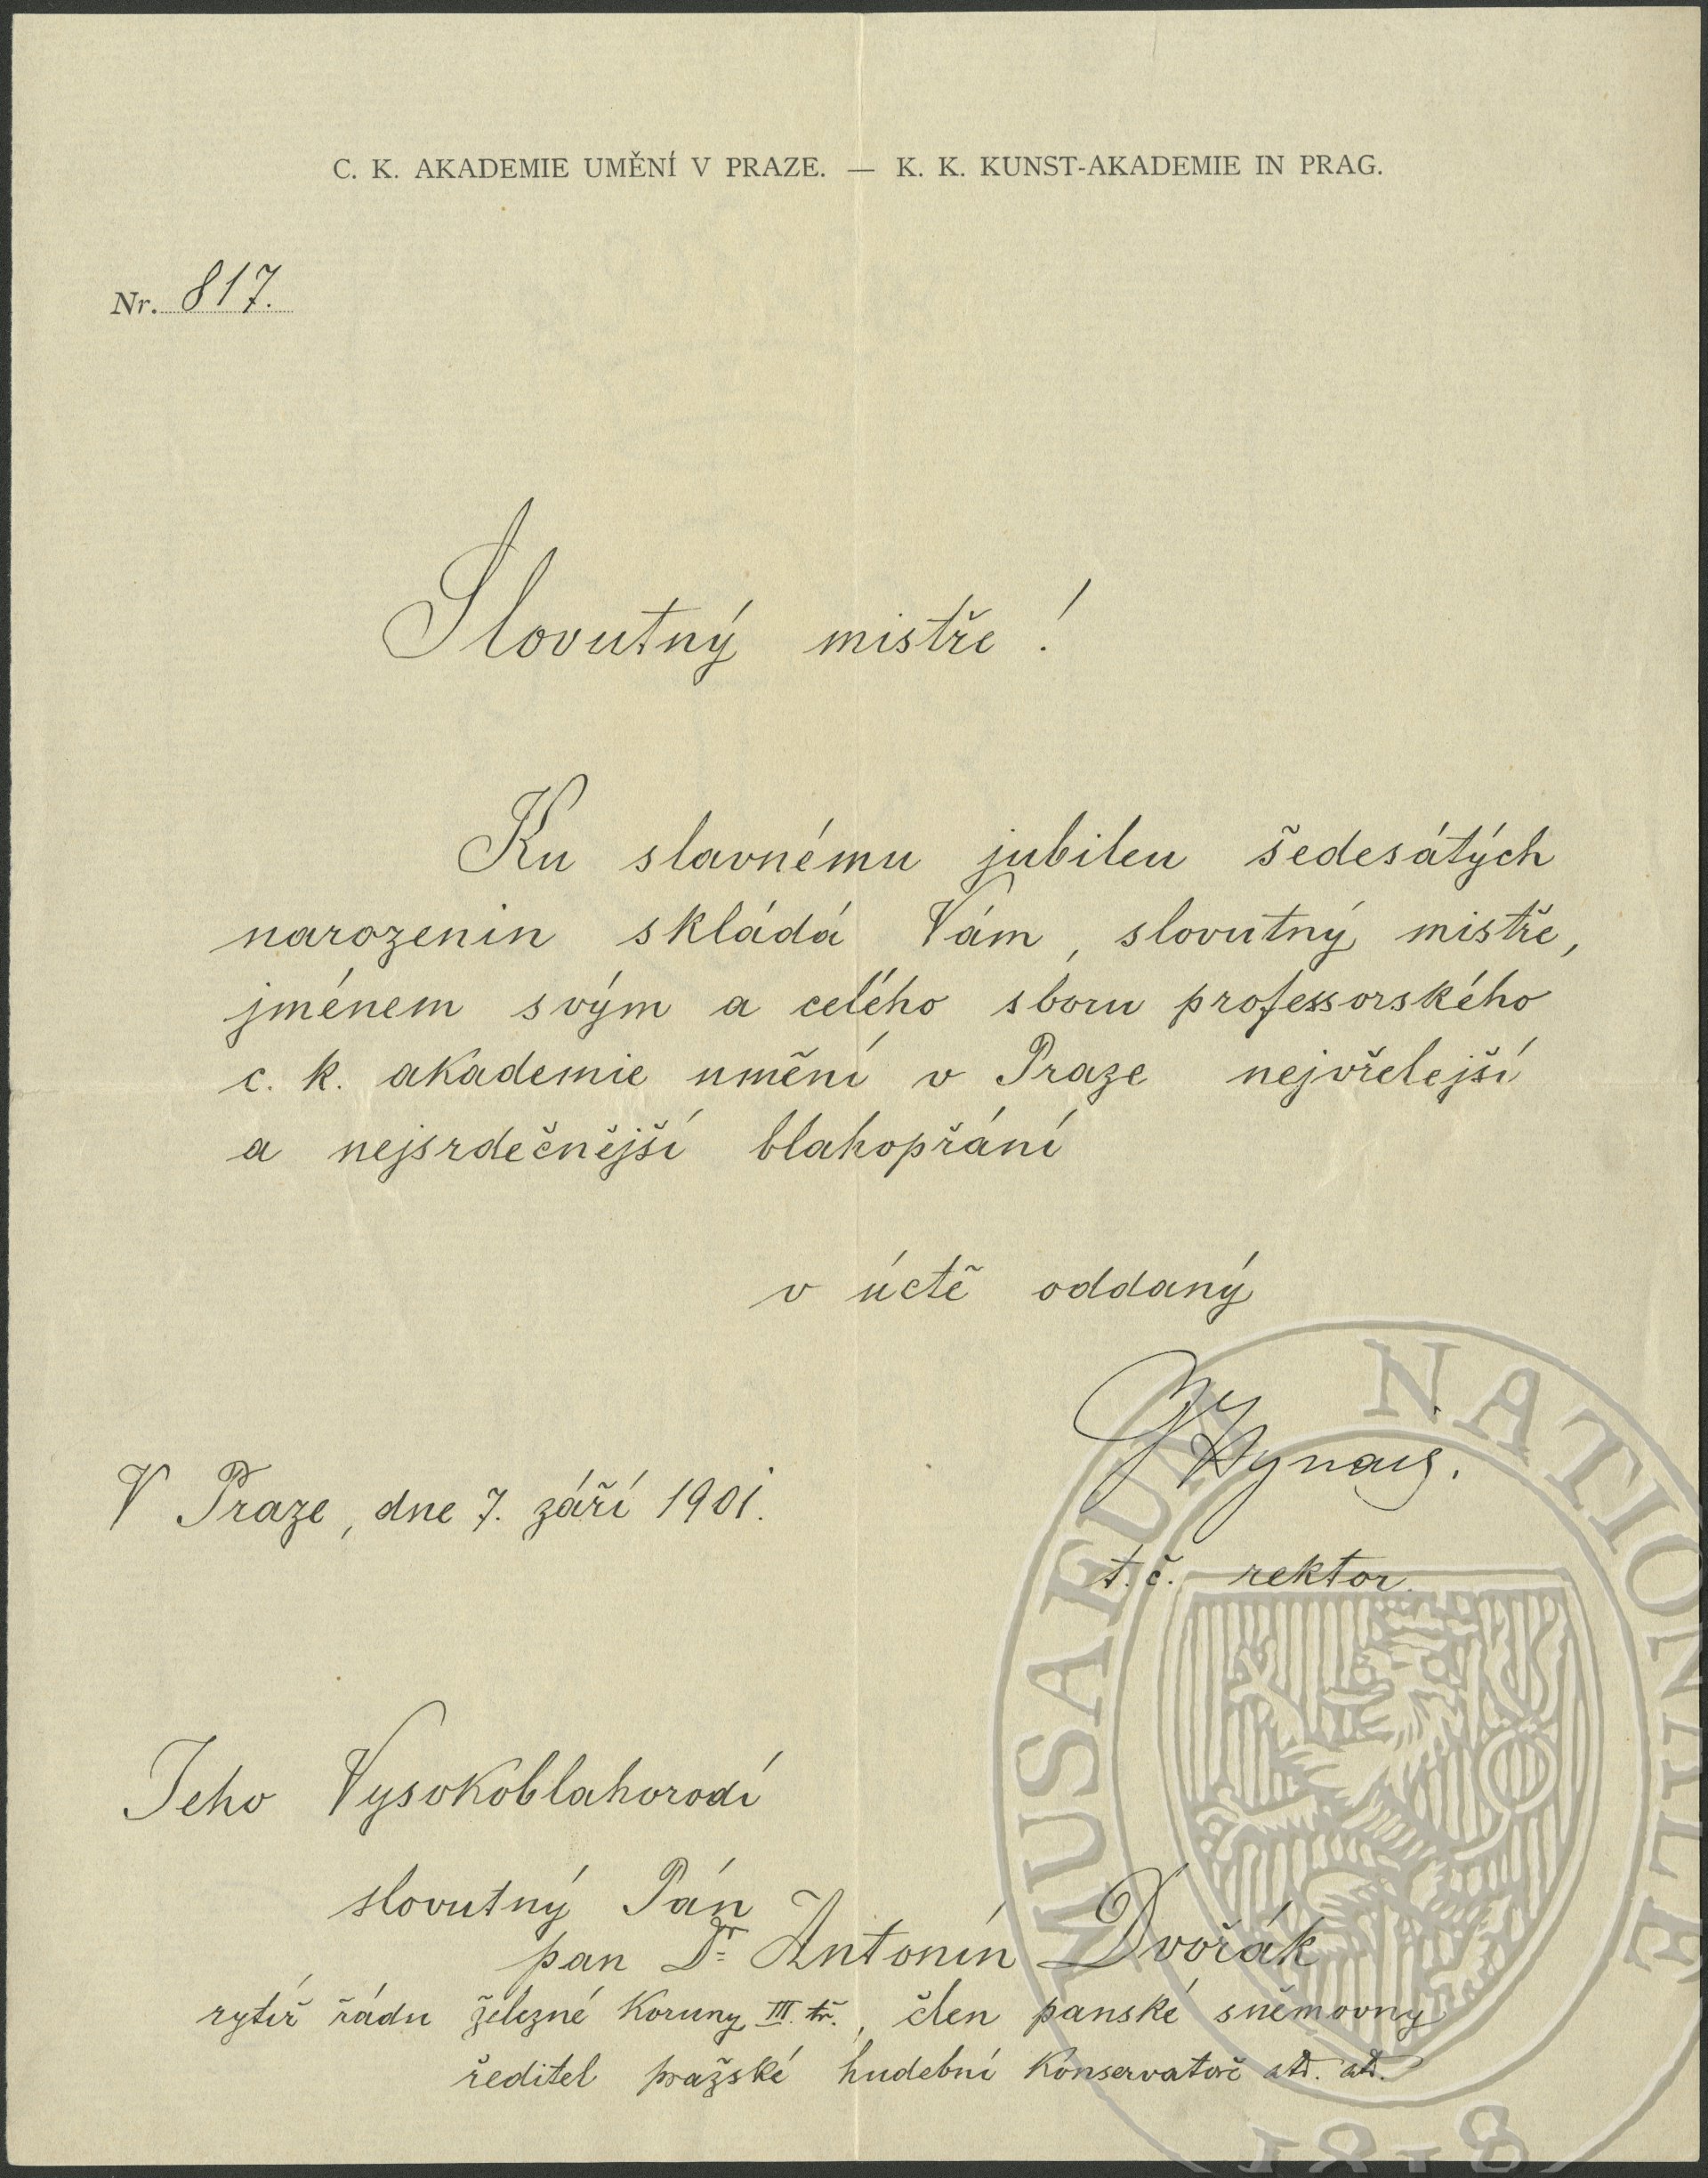 C. K. AKADEMIE UMĚNÍ V PRAZE. — K. K. KUNST-AKADEMIE IN PRAG.
Nr. 817.
Slovutný mistře!
Ku slavnému jubileu šedesátých
narozenin skládá Vám, slovutný mistře,
jménem svým a celého sboru professorského
c. k. akademie umění v Praze nejvřelejší
a nejsrdečnější blahopřání
v úctě oddaný
VHynais.
V Praze, dne 7. září 1901.
t. č. rektor.
Jeho Vysokoblahorodí
slovutný Pán
pan Dr Antonín Dvořák
rytíř řádu železné Koruny III. tř., člen panské sněmovny
ředitel pražské hudební Konservatoře atd. atd.
MUSAEUM NATIONALE
1818